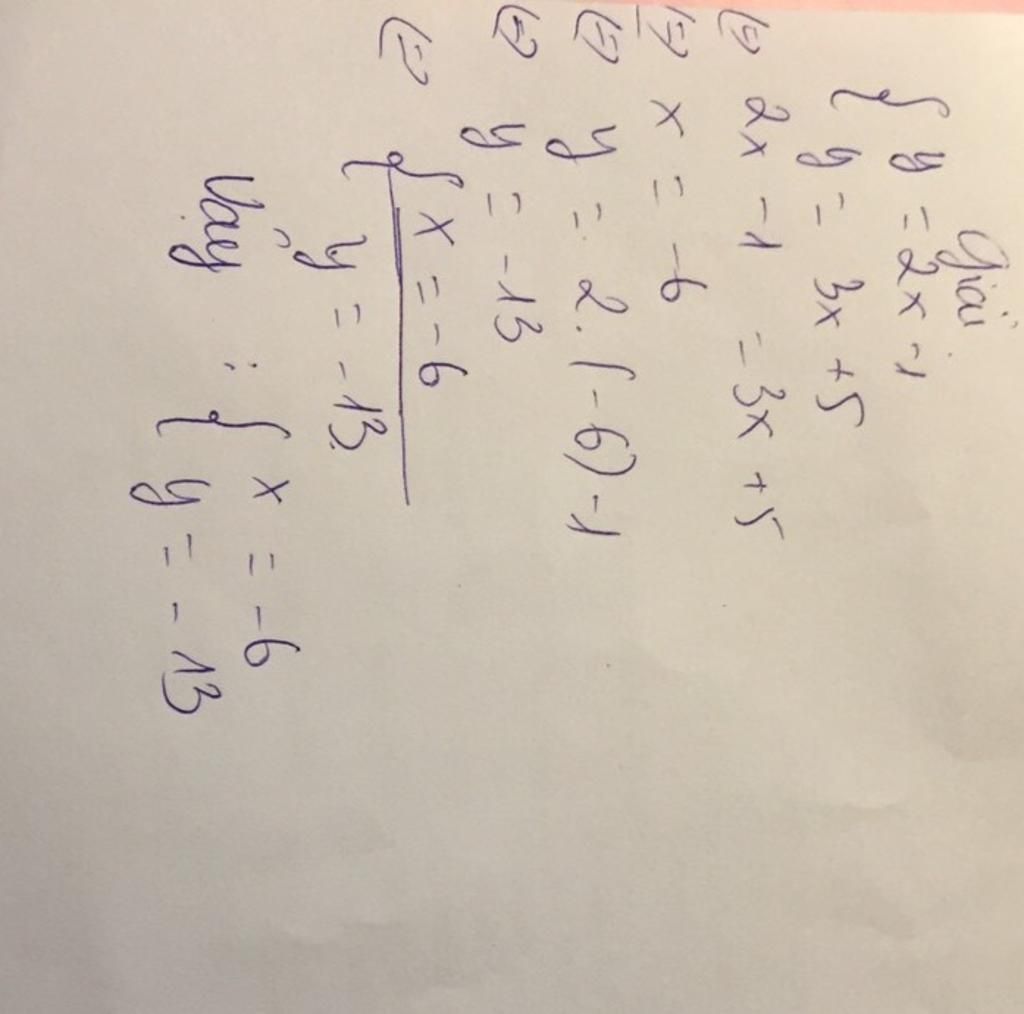 Giải
{ y = 2x - 1
y = 3x + 5
(=) 2x - 1 = 3x + 5
(=) x = -6
(=) y = 2. (-6) - 1
(=) y = -13
(=) { x = -6
y = -13
Vậy : { x = -6
y = -13